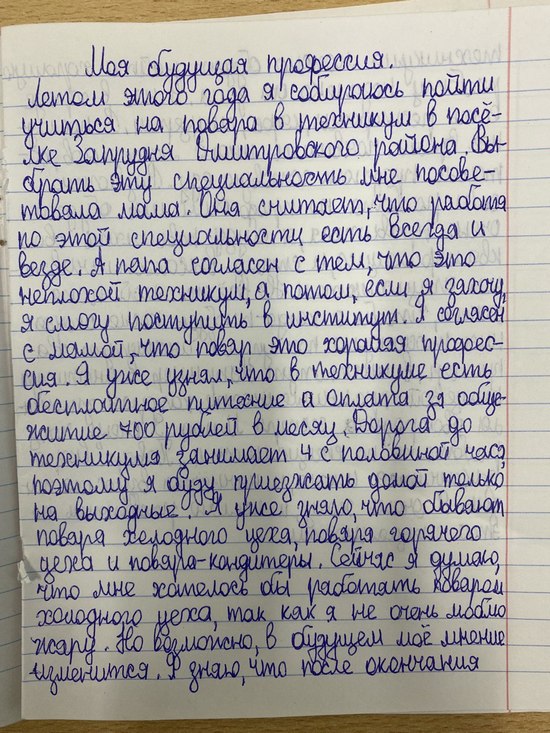 Моя будущая профессия.
Летом этого года я собираюсь пойти
учиться на повара в техникум в посё-
лке Запрудня Дмитровского района. Вы-
брать эту специальность мне посове-
товала мама. Она считает, что работа
по этой специальности есть всегда и
везде. А папа согласен с тем, что это
неплохой техникум, а, потом, если я захочу,
я смогу поступить в институт. Я согласен
с мамой, что повар это хорошая профес-
сия. Я уже узнал, что в техникуме есть
бесплатное питение а оплата за обще-
житие 700 рублей в месяц. Дорога до
техникума занимает 4 с половиной часа,
поэтому я буду приезжать домой только
на выходные. Я уже знаю, что бывают
повара холодного цеха, повара горячего
цеха и повара-кондитеры. Сейчас я думаю,
что мне хотелось бы работать поваром
холодного цеха, так как я не очень люблю
жару. Но возможно, в будущем моё мнение
изменится. Я знаю, что после окончания